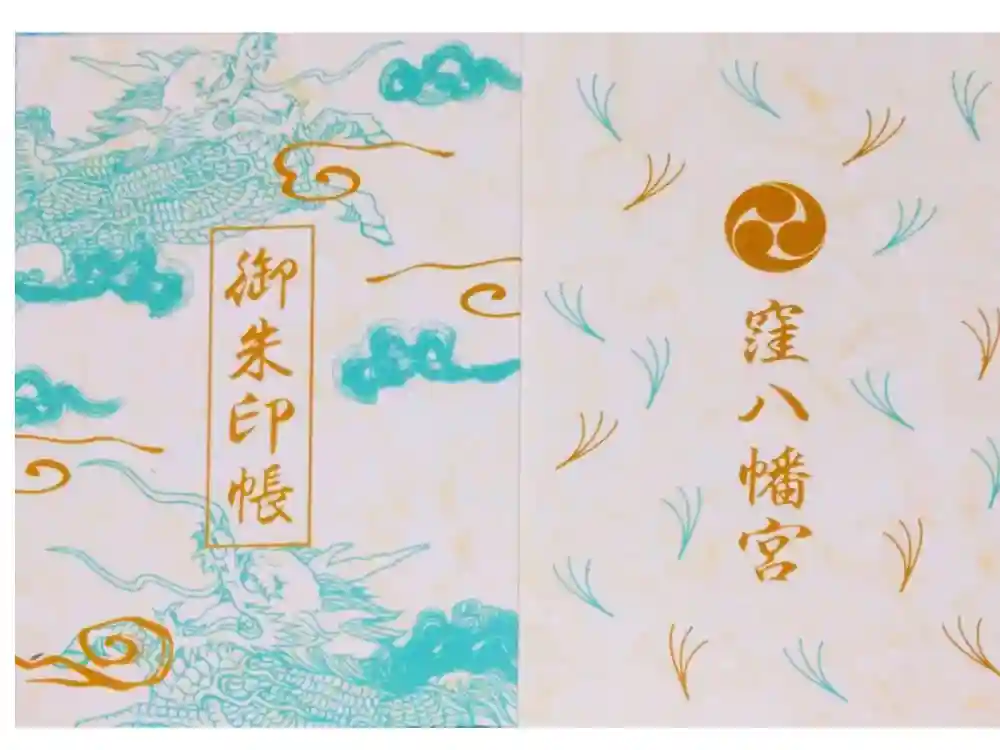 御朱印帳
窪八幡宮